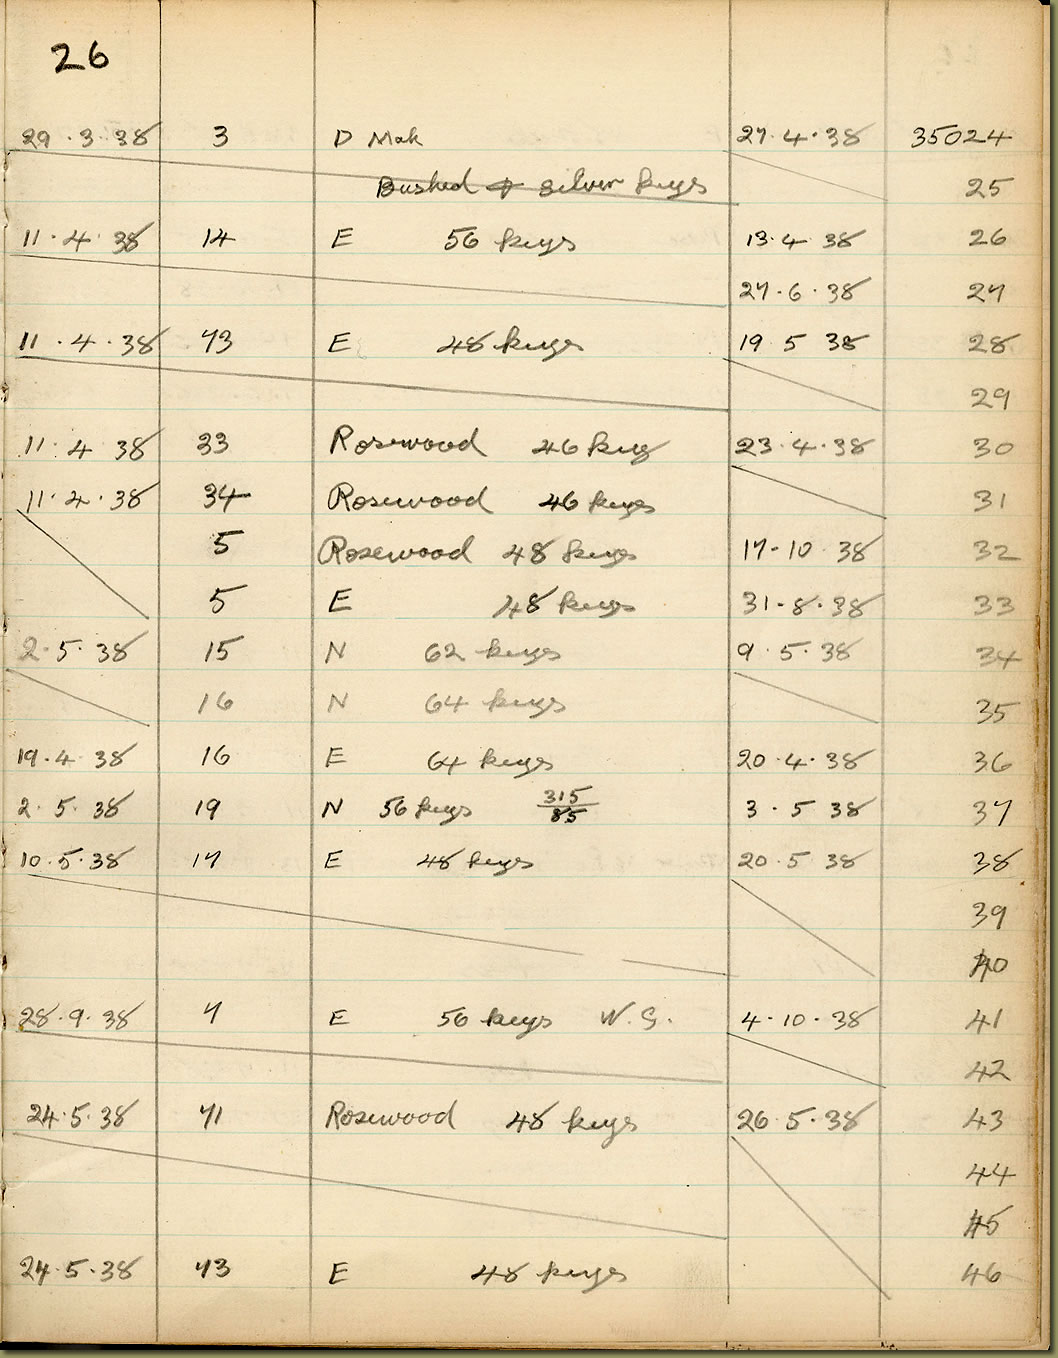 26
29 . 3 . 38 3 D Mah 27 . 4 . 38 35024
Bushed & silver keys 25
11 . 4 . 38 14 E 56 keys 13 . 4 38 26
27 . 6 . 38 27
11 . 4 . 38 73 E 48 keys 19 5 38 28
29
11 . 4 38 33 Rosewood 46 key 23 . 4 . 38 30
11 . 4 . 38 34 Rosewood 46 keys 31
5 Rosewood 48 keys 17 - 10 38 32
5 E 48 keys 31 - 8 . 38 33
2 . 5 . 38 15 N 62 keys 9 . 5 . 38 34
16 N 64 keys 35
19 . 4 38 16 E 64 keys 20 . 4 . 38 36
2 . 5 . 38 19 N 56 keys 315/85 3 . 5 38 37
10 . 5 . 38 17 E 48 keys 20 . 5 38 38
39
40
28 . 9 . 38 7 E 56 keys W. G. 4 . 10 . 38 41
42
24 . 5 . 38 71 Rosewood 48 keys 26 5 . 38 43
44
45
24 . 5 . 38 73 E 48 keys 46